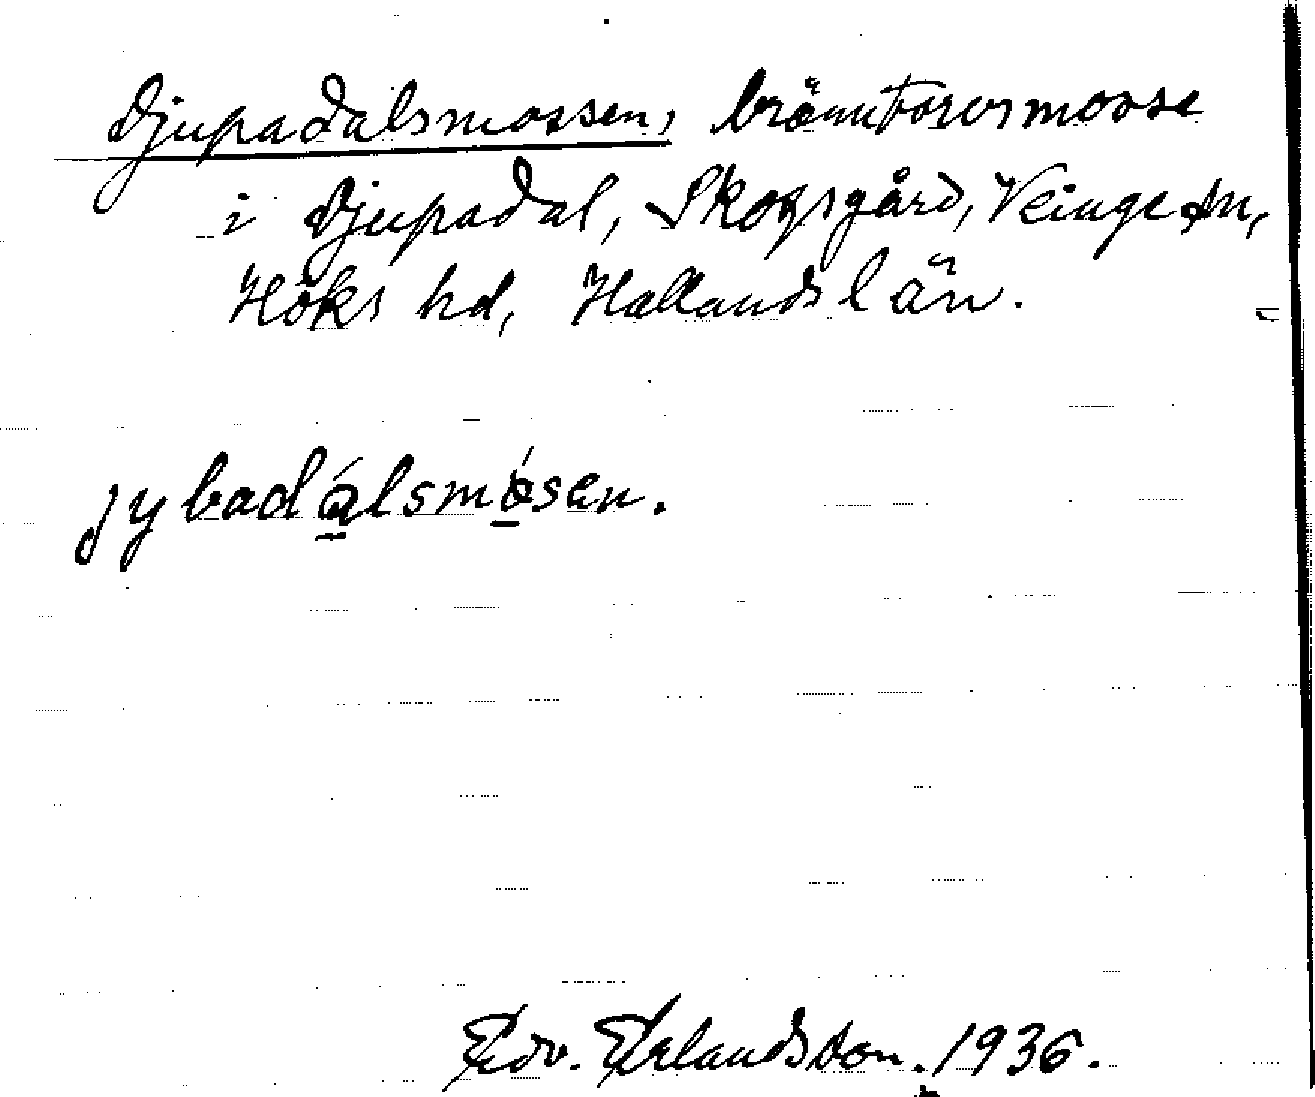 Djupadalsmossen, bränntorvsmosse
i Djupadal, Skogsgård, Veinge sn,
Höks hd, Hallands län.
jybadálsmósen.
Edv. Erlandsson. 1936.